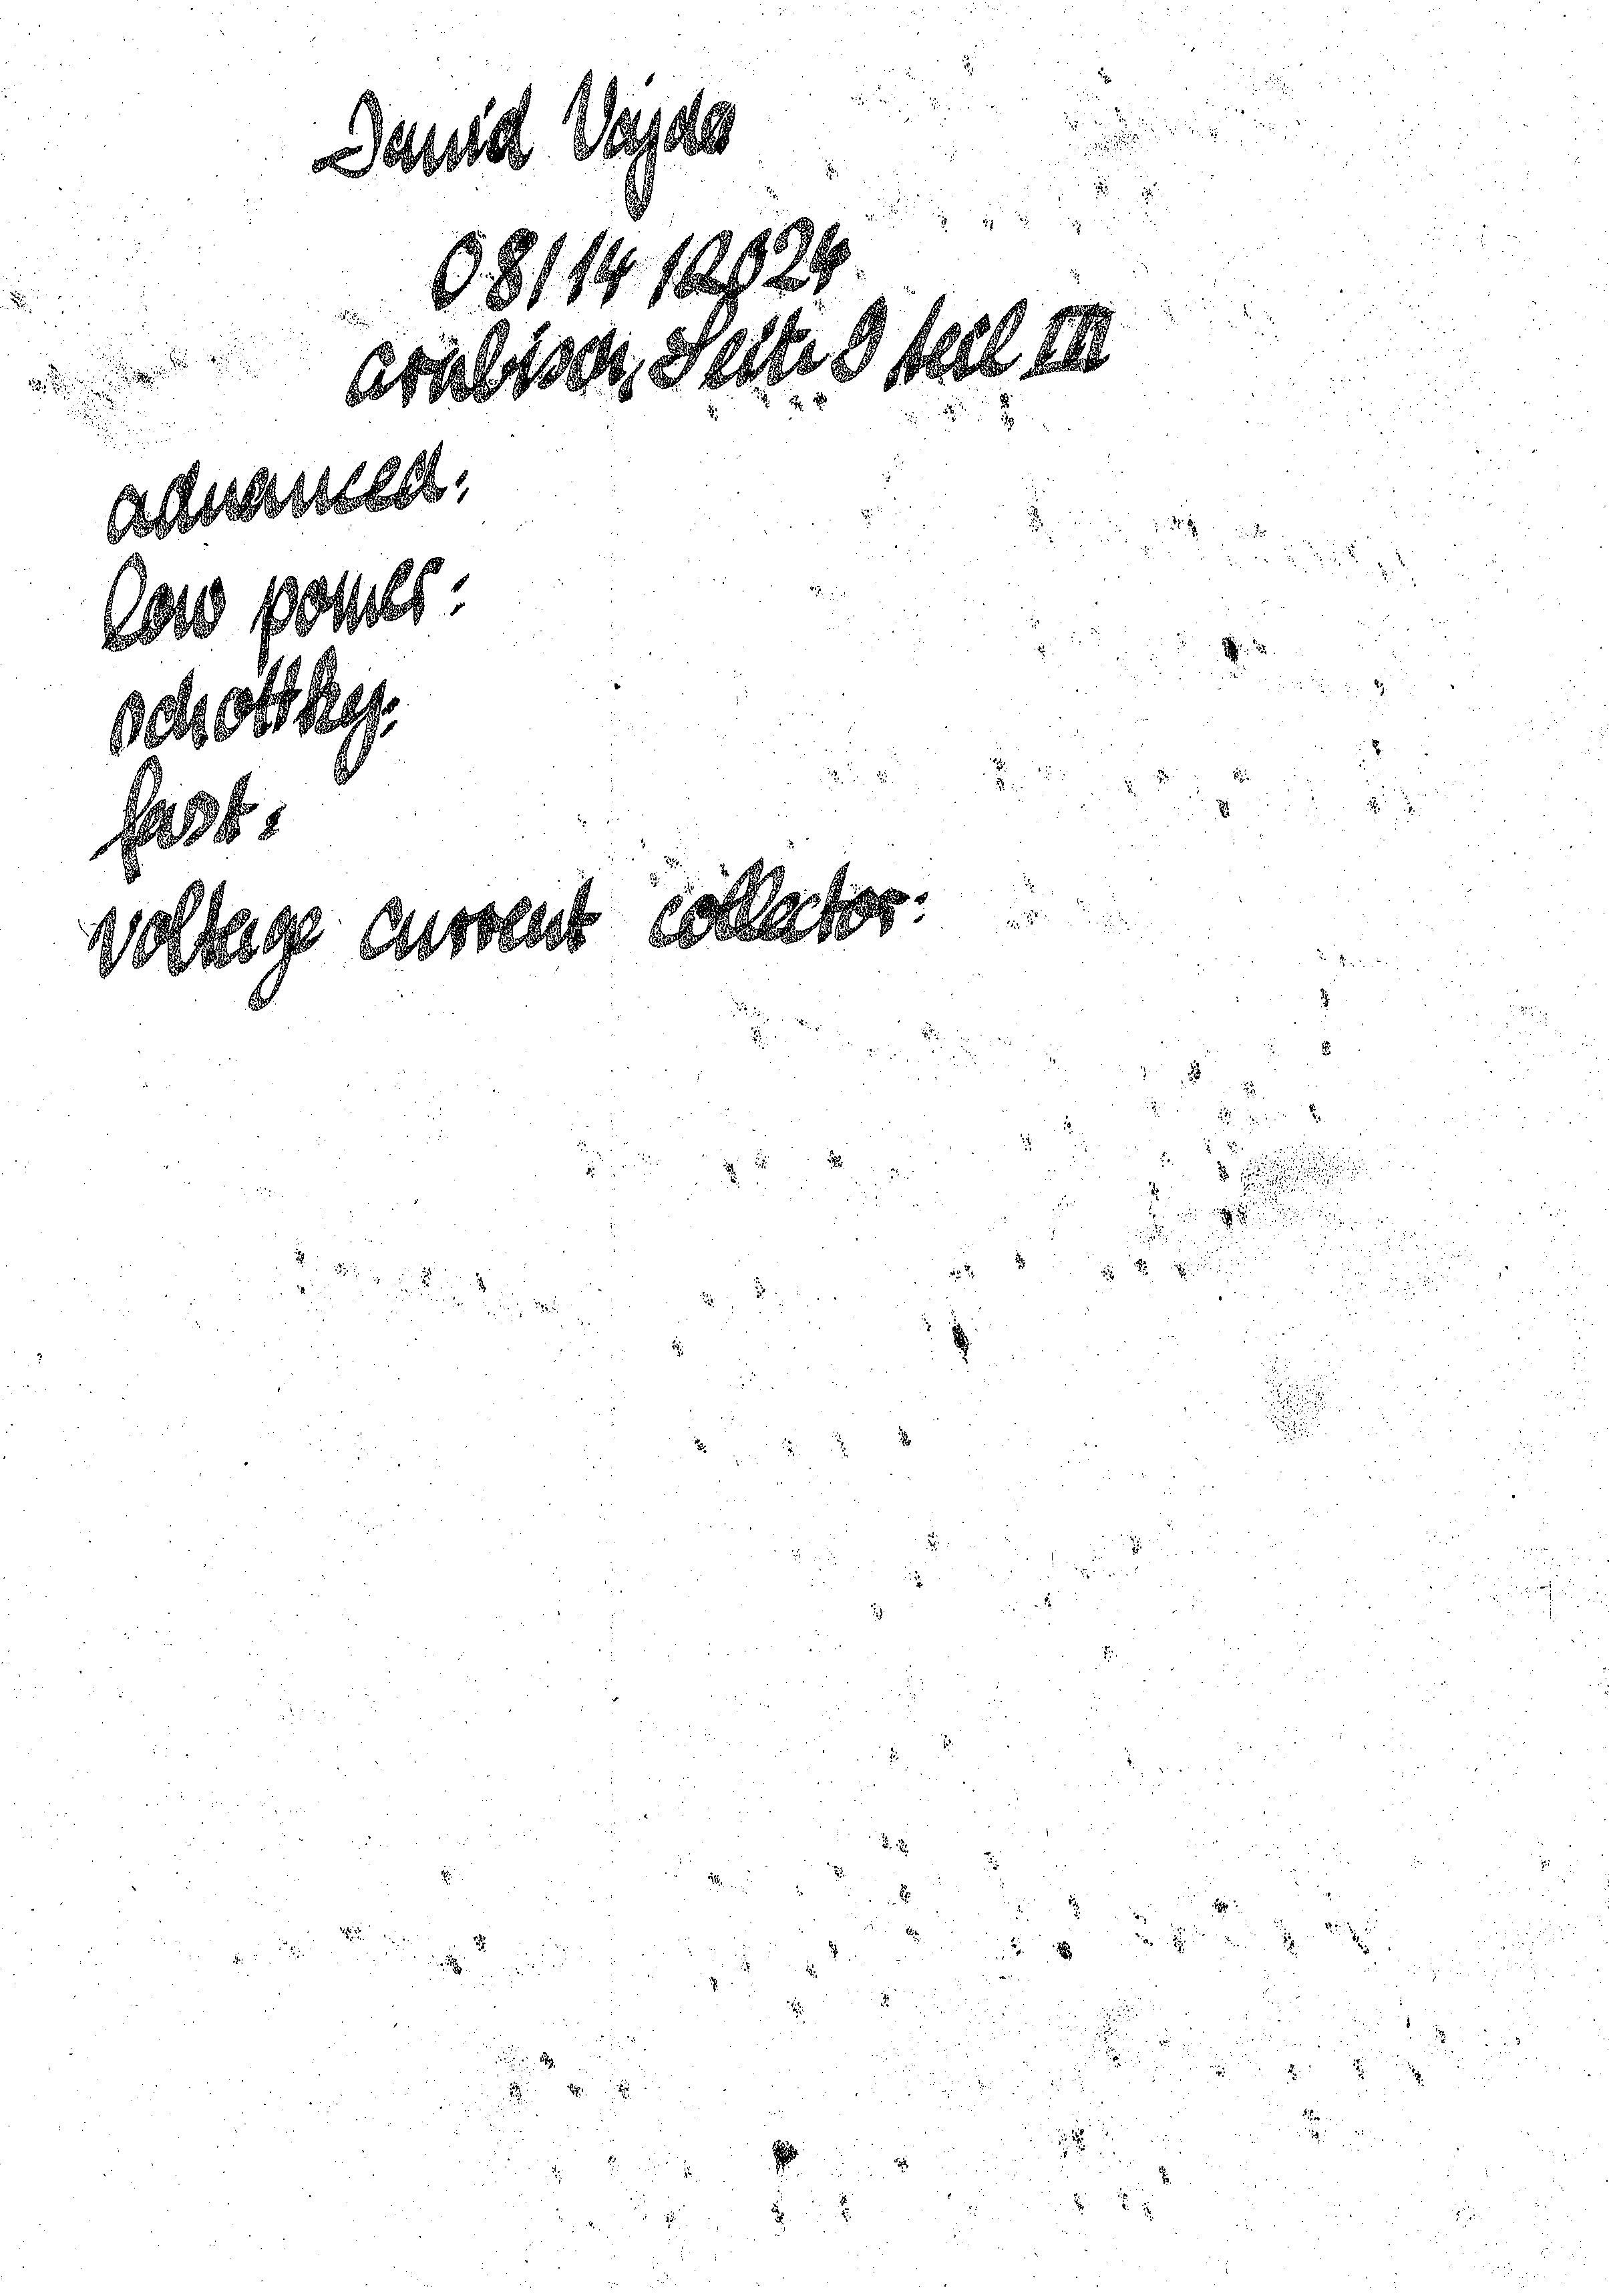 David Vajda
08/14/2024
arabisch, Seite 9 teil III
advanced:
low power:
schottky:
fast:
voltage current collector: